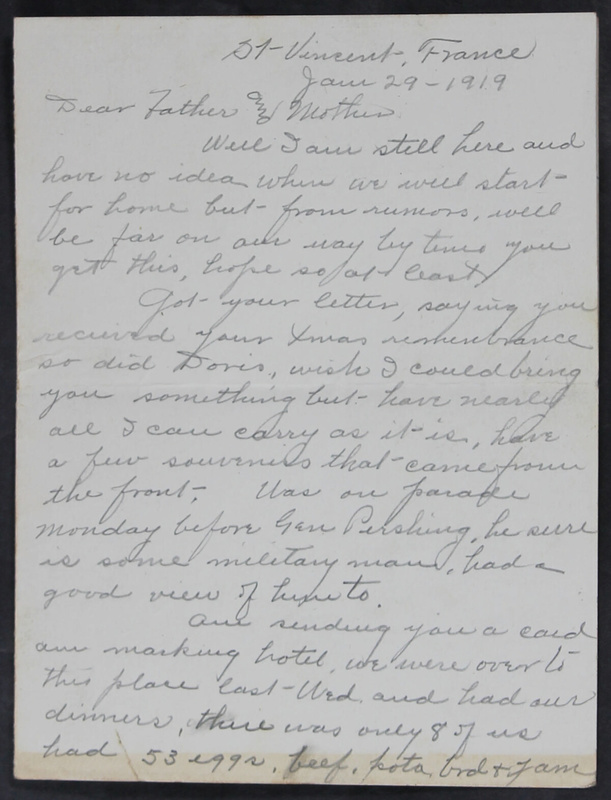 St-Vincent, France
Jan 29-1919
Dear Father & Mother
Well I am still here and
have no idea when we will start
for home but from rumors, will
be far on our way by time you
get this, hope so at least.
Got your letter, saying you
recieved your Xmas remembrance
so did Doris, wish I could bring
you something but have nearly
all I can carry as it is, have
a few souvenirs that came from
the front. Was on parade
Monday before Gen Pershing, he sure
is some military man, had a
good view of him to.
Am sending you a card
am marking hotel, we were over to
this place last Wed. and had our
dinners, there was only 8 of us
had 53 eggs, beef, pota, brd + Jam